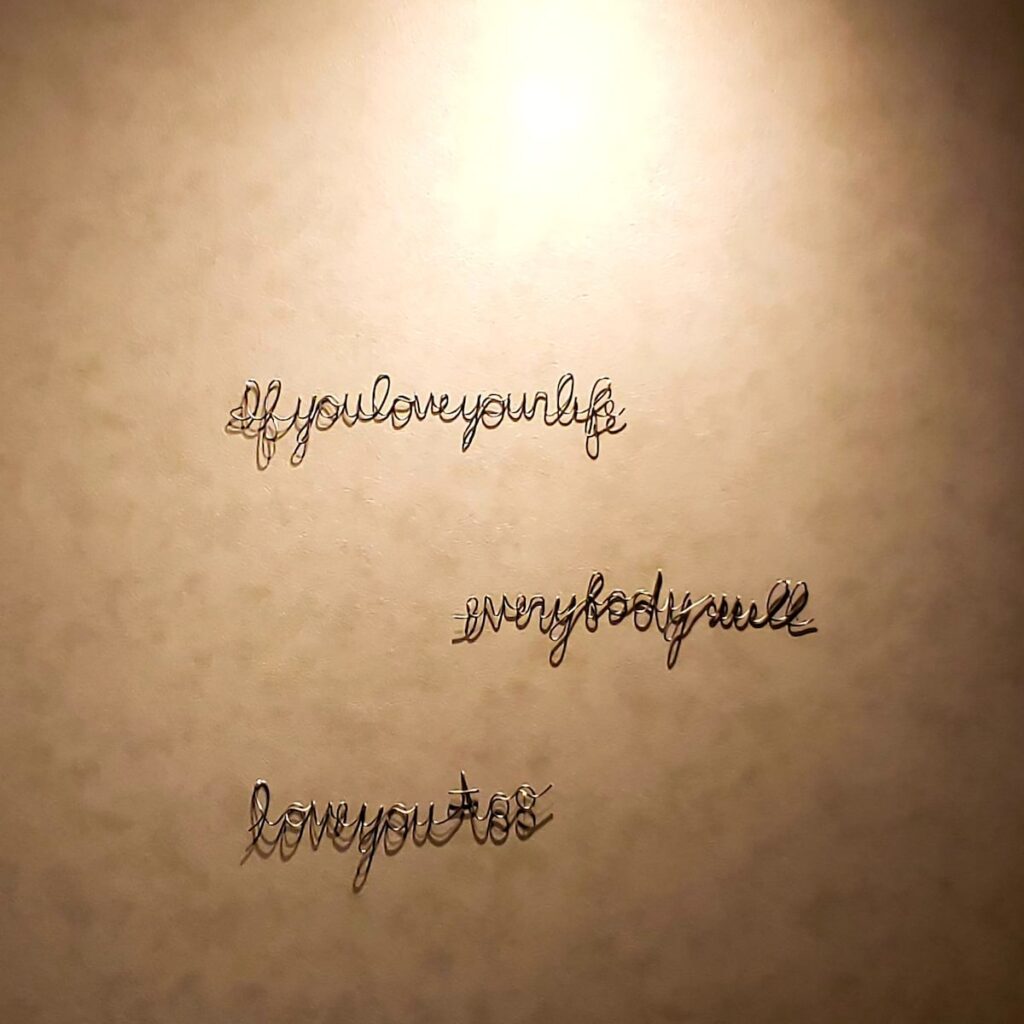 If you love your life
everybody will
love you too